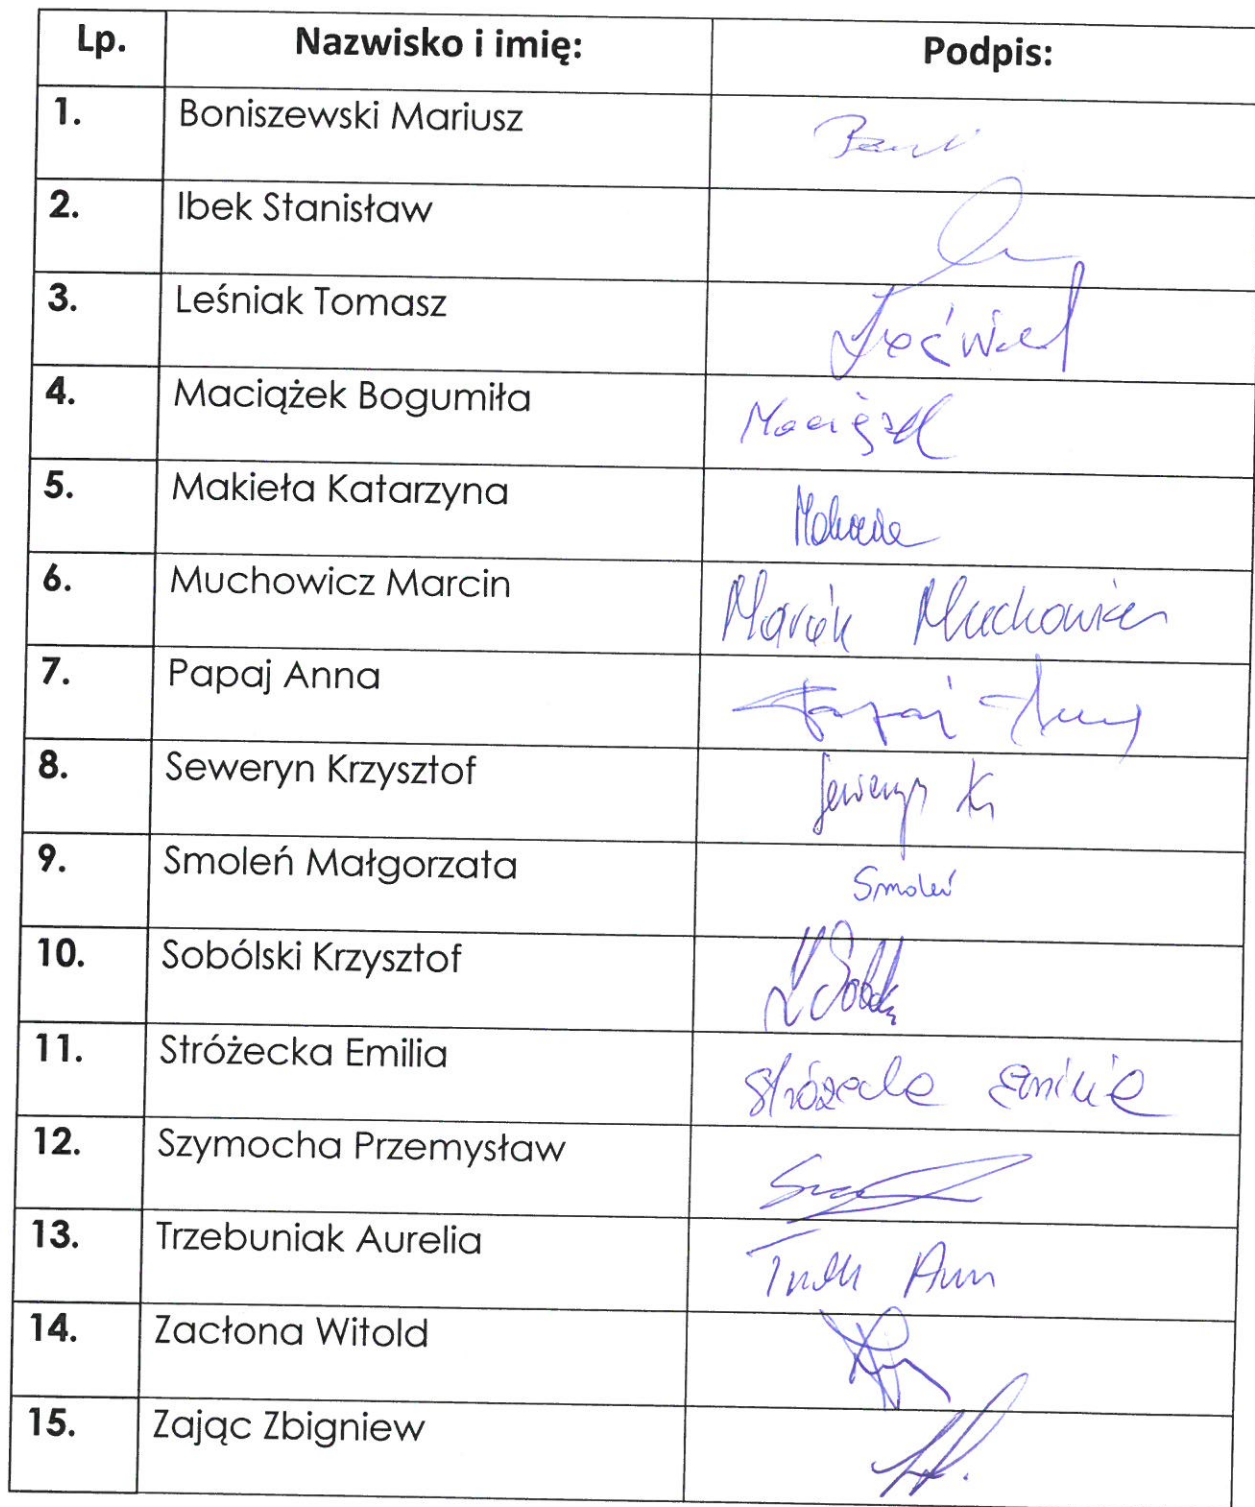 Lp. Nazwisko i imię: Podpis:
1. Boniszewski Mariusz
2. Ibek Stanisław
3. Leśniak Tomasz
4. Maciążek Bogumiła Maciążek
5. Makieła Katarzyna
6. Muchowicz Marcin Marcin Muchowicz
7. Papaj Anna Papaj Anna
8. Seweryn Krzysztof Seweryn K
9. Smoleń Małgorzata Smoleń
10. Sobólski Krzysztof
11. Stróżecka Emilia Stróżecka Emilia
12. Szymocha Przemysław
13. Trzebuniak Aurelia
14. Zacłona Witold
15. Zając Zbigniew